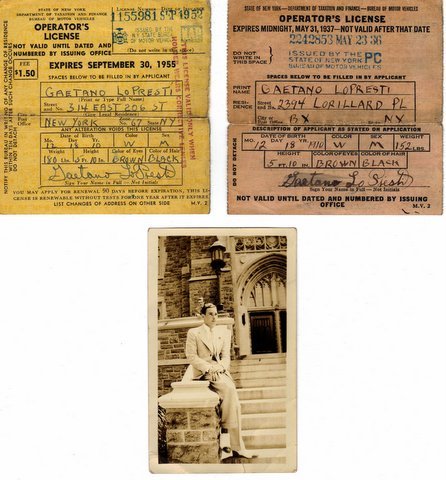 STATE OF NEW YORK
DEPARTMENT OF TAXATION AND FINANCE
BUREAU OF MOTOR VEHICLES
OPERATOR'S
LICENSE
NOT VALID UNTIL DATED AND
NUMBERED BY ISSUING OFFICE
License Number
ISSUED BY
(Do not write in above space)
FEE
$1.50
EXPIRES SEPTEMBER 30, 1955
SPACES BELOW TO BE FILLED IN BY APPLICANT
GAETANO LOPRESTI
(Print or Type Full Name)
Street
and No. 314 EAST 206 ST
City or
NEW YORK 67 NY
ANY ALTERATION VOIDS THIS LICENSE
Date of Birth
Color
Sex
12 18 10 W M
Weight
Height
Color of Eyes
Color of Hair
180 5 10 BROWN BLACK
Gaetano LoPresti
Sign Your Name in Full
YOU MAY APPLY FOR RENEWAL 90 DAYS BEFORE EXPIRATION. THIS LICENSE
IS RENEWABLE WITHOUT TESTS FOR ONE YEAR AFTER IT EXPIRES.
LIST CHANGES OF ADDRESS ON OTHER SIDE
M.V. 2
DO NOT DETACH
STATE OF NEW YORK—DEPARTMENT OF TAXATION AND FINANCE—BUREAU OF MOTOR VEHICLES
OPERATOR'S LICENSE
EXPIRES MIDNIGHT, MAY 31, 1937—NOT VALID AFTER THAT DATE
DO NOT
WRITE IN
THIS SPACE
MAY 23 36
ISSUED BY THE
STATE OF NEW YORK
BUREAU OF MOTOR VEHICLES
PC
SPACES BELOW TO BE FILLED IN BY APPLICANT
PRINT
NAME
GAETANO LOPRESTI
RESIDENCE
Street
and No. 2394 LORILLARD PL
City or
BX NY
DESCRIPTION OF APPLICANT AS STATED ON APPLICATION
DATE OF BIRTH
COLOR
SEX
WEIGHT
12 18 1910 W M 152 LBS
HEIGHT
COLOR OF EYES
COLOR OF HAIR
5 10 BROWN BLACK
Gaetano LoPresti
Sign Your Name in Full — Not Initials
NOT VALID UNTIL DATED AND NUMBERED BY ISSUING
OFFICE
M.V. 2
DO NOT DETACH